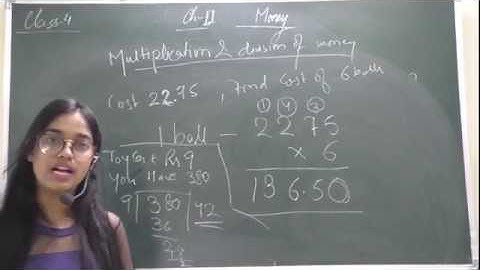 Class-4
Ch-11 Money
Multiplication & division of money
Cost 22.75, Find Cost of 6 balls
1 ball -
1 4 3
2275
× 6
136.50
Toy Cost Rs 9
You Have 380
9 380 42
36